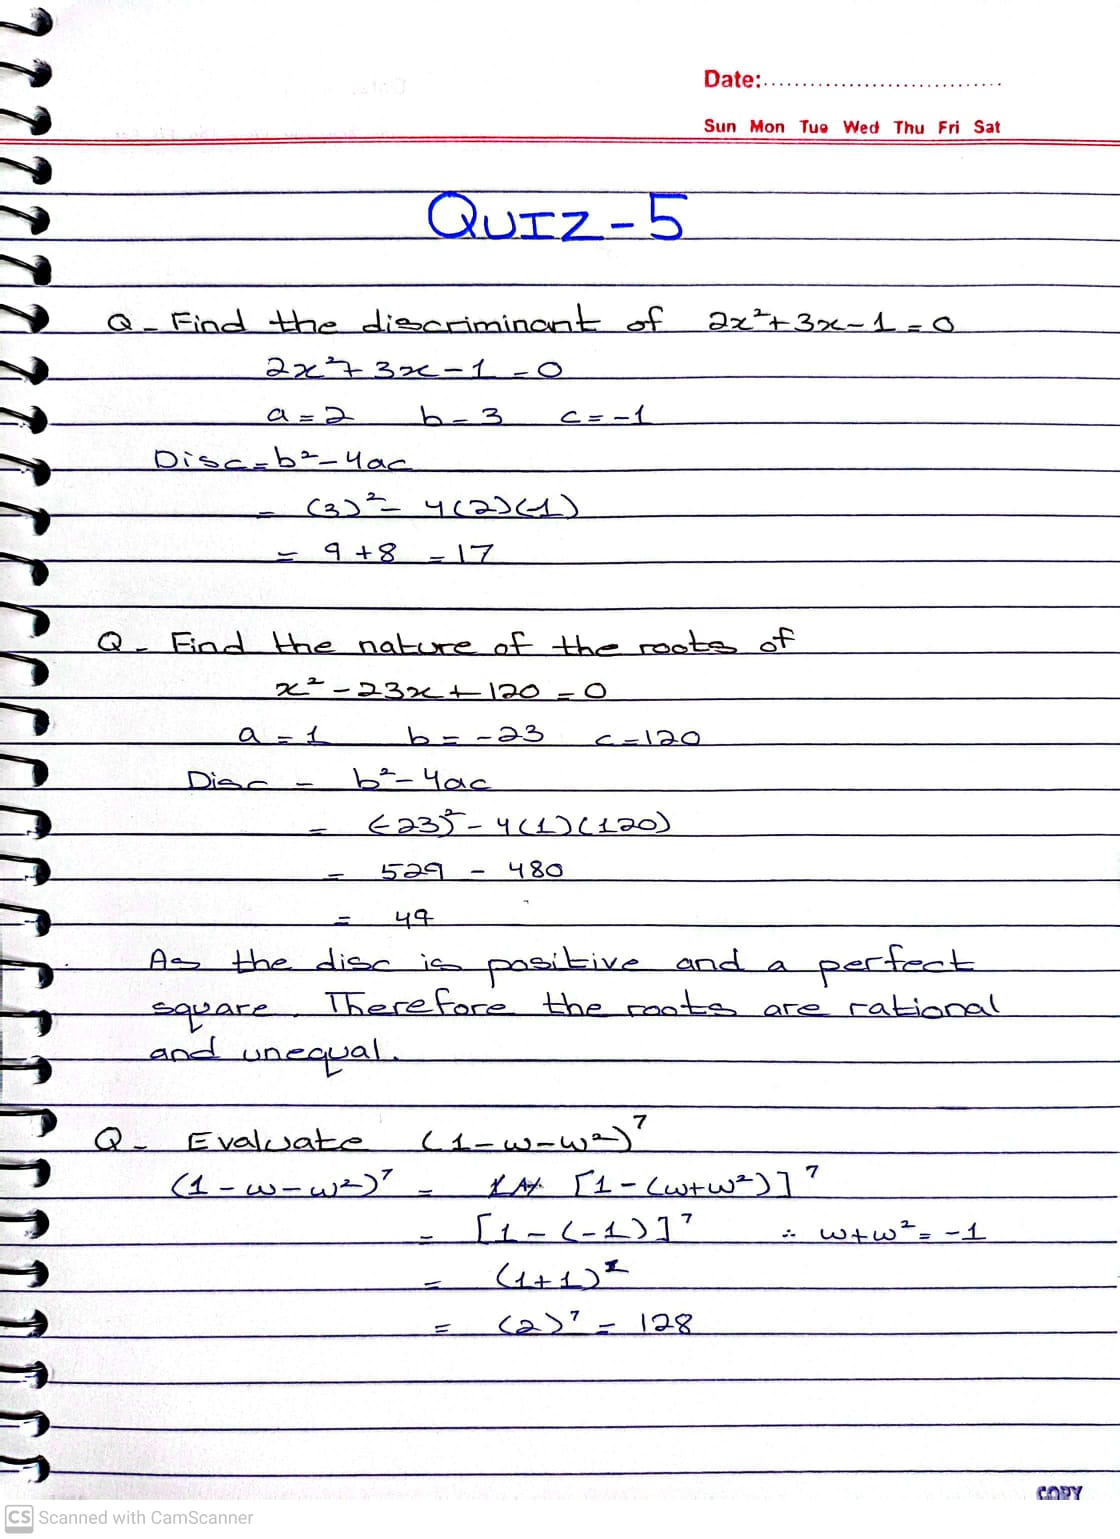 Date:..............................
Sun Mon Tue Wed Thu Fri Sat
QUIZ-5
Q- Find the discriminant of 2x²+3x-1=0
2x²+3x-1=0
a=2 b=3 c=-1
Disc=b²-4ac
= (3)²- 4(2)(-1)
= 9+8 =17
Q- Find the nature of the roots of
x²-23x+120=0
a=1 b=-23 c=120
Disc = b²-4ac
= (-23)²-4(1)(120)
= 529 - 480
= 49
As the disc is positive and a perfect
square. Therefore the roots are rational
and unequal.
Q- Evaluate (1-w-w²)⁷
(1-w-w²)⁷ = [1-(w+w²)]⁷
= [1-(-1)]⁷ ∴ w+w²=-1
= (1+1)⁷
= (2)⁷ = 128
COPY
CS Scanned with CamScanner